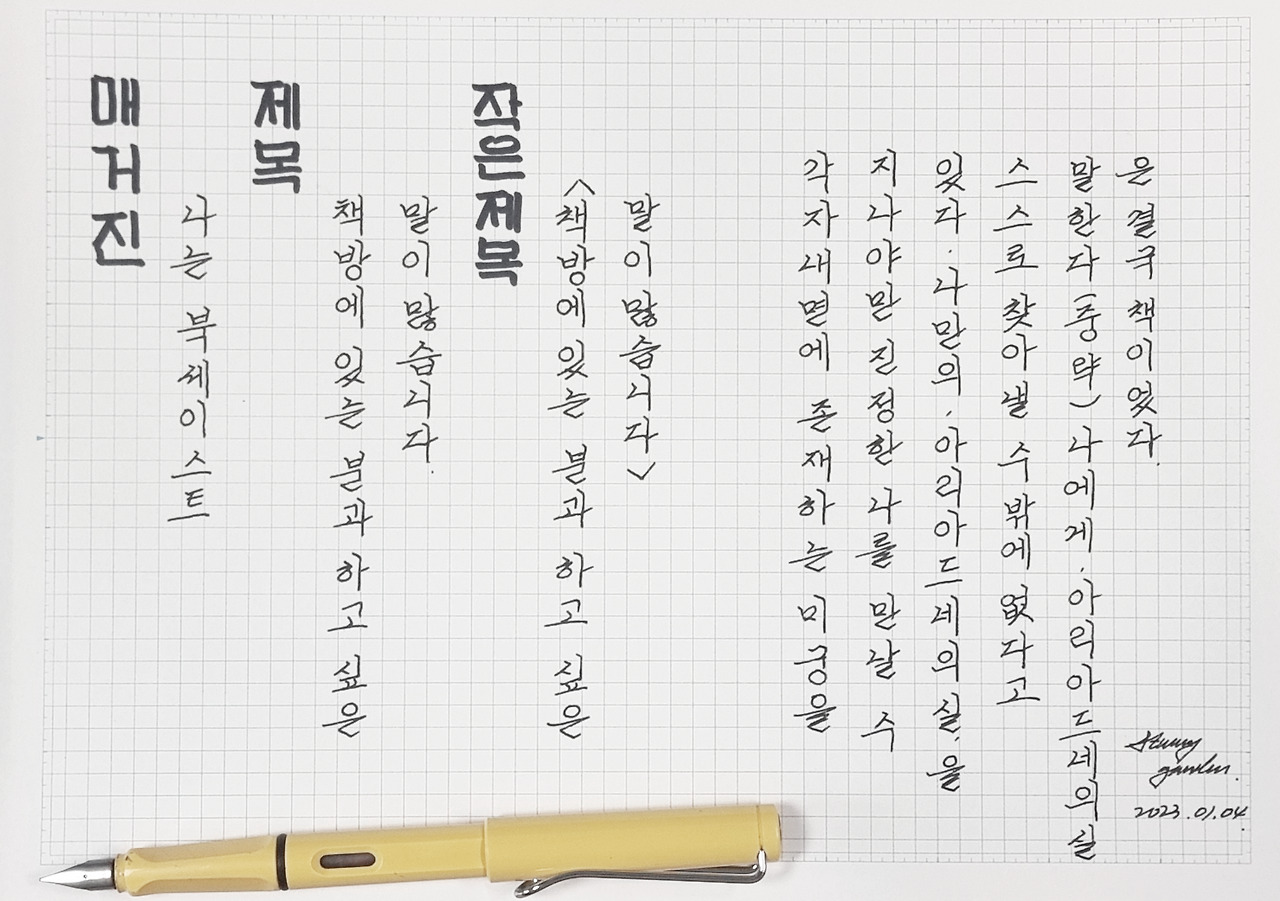 매거진
나는 북세이스트
제목
책방에 있는 분과 하고 싶은
말이 많습니다.
작은제목
<책방에 있는 분과 하고 싶은
말이 많습니다>
각자 내면에 존재하는 미궁을
지나야만 진정한 나를 만날 수
있다. 나만의 '아리아드네의 실'을
스스로 찾아낼 수밖에 없다고
말한다(중략) 나에게 '아리아드네의 실
은 결국 책이었다.
2023.01.04